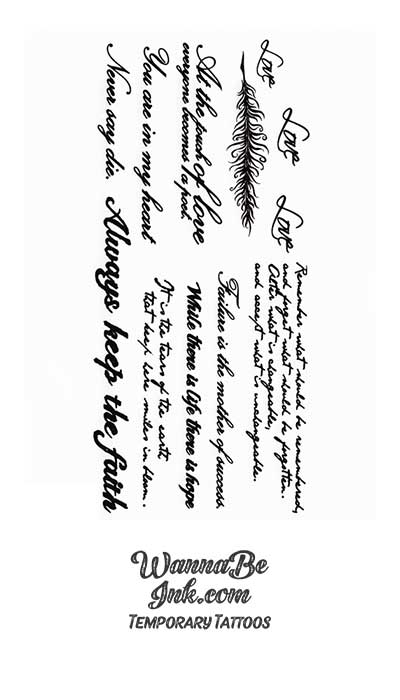 Love
Love
Love
At the touch of love
everyone becomes a poet.
You are in my heart
Never say die.
Remember what should be remembered,
and forget what should be forgotten.
Alter what is changeable,
and accept what is unchangeable.
Failure is the mother of success.
While there is life there is hope
It is the tears of the earth
that keep here smiles in bloom.
Always keep the faith
WannaBe
Ink.com
TEMPORARY TATTOOS